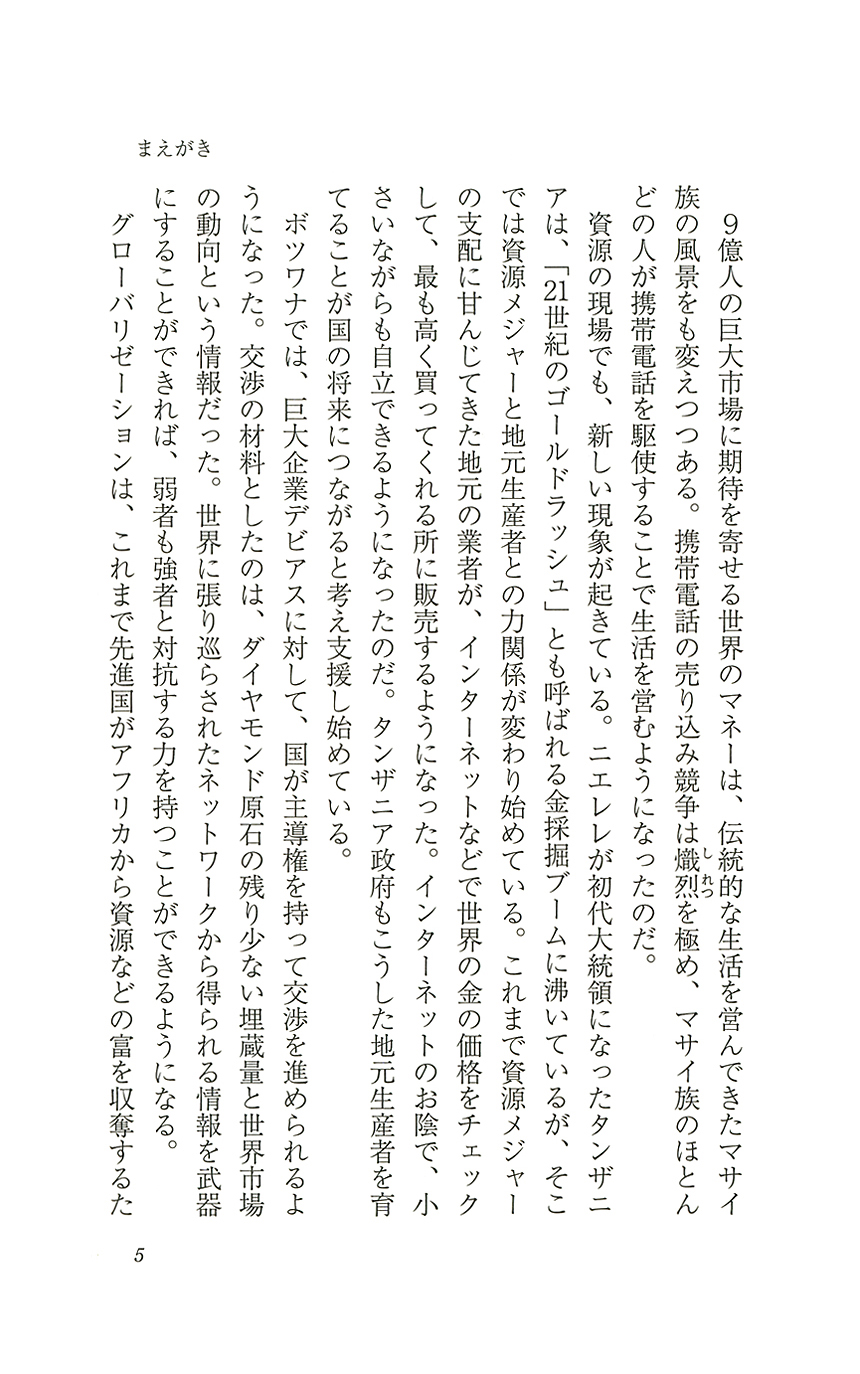 まえがき
９億人の巨大市場に期待を寄せる世界のマネーは、伝統的な生活を営んできたマサイ
族の風景をも変えつつある。携帯電話の売り込み競争は熾烈を極め、マサイ族のほとん
しれつ
どの人が携帯電話を駆使することで生活を営むようになったのだ。
資源の現場でも、新しい現象が起きている。ニエレレが初代大統領になったタンザニ
アは、「21世紀のゴールドラッシュ」とも呼ばれる金採掘ブームに沸いているが、そこ
では資源メジャーと地元生産者との力関係が変わり始めている。これまで資源メジャー
の支配に甘んじてきた地元の業者が、インターネットなどで世界の金の価格をチェック
して、最も高く買ってくれる所に販売するようになった。インターネットのお陰で、小
さいながらも自立できるようになったのだ。タンザニア政府もこうした地元生産者を育
てることが国の将来につながると考え支援し始めている。
ボツワナでは、巨大企業デビアスに対して、国が主導権を持って交渉を進められるよ
うになった。交渉の材料としたのは、ダイヤモンド原石の残り少ない埋蔵量と世界市場
の動向という情報だった。世界に張り巡らされたネットワークから得られる情報を武器
にすることができれば、弱者も強者と対抗する力を持つことができるようになる。
グローバリゼーションは、これまで先進国がアフリカから資源などの富を収奪するた
5